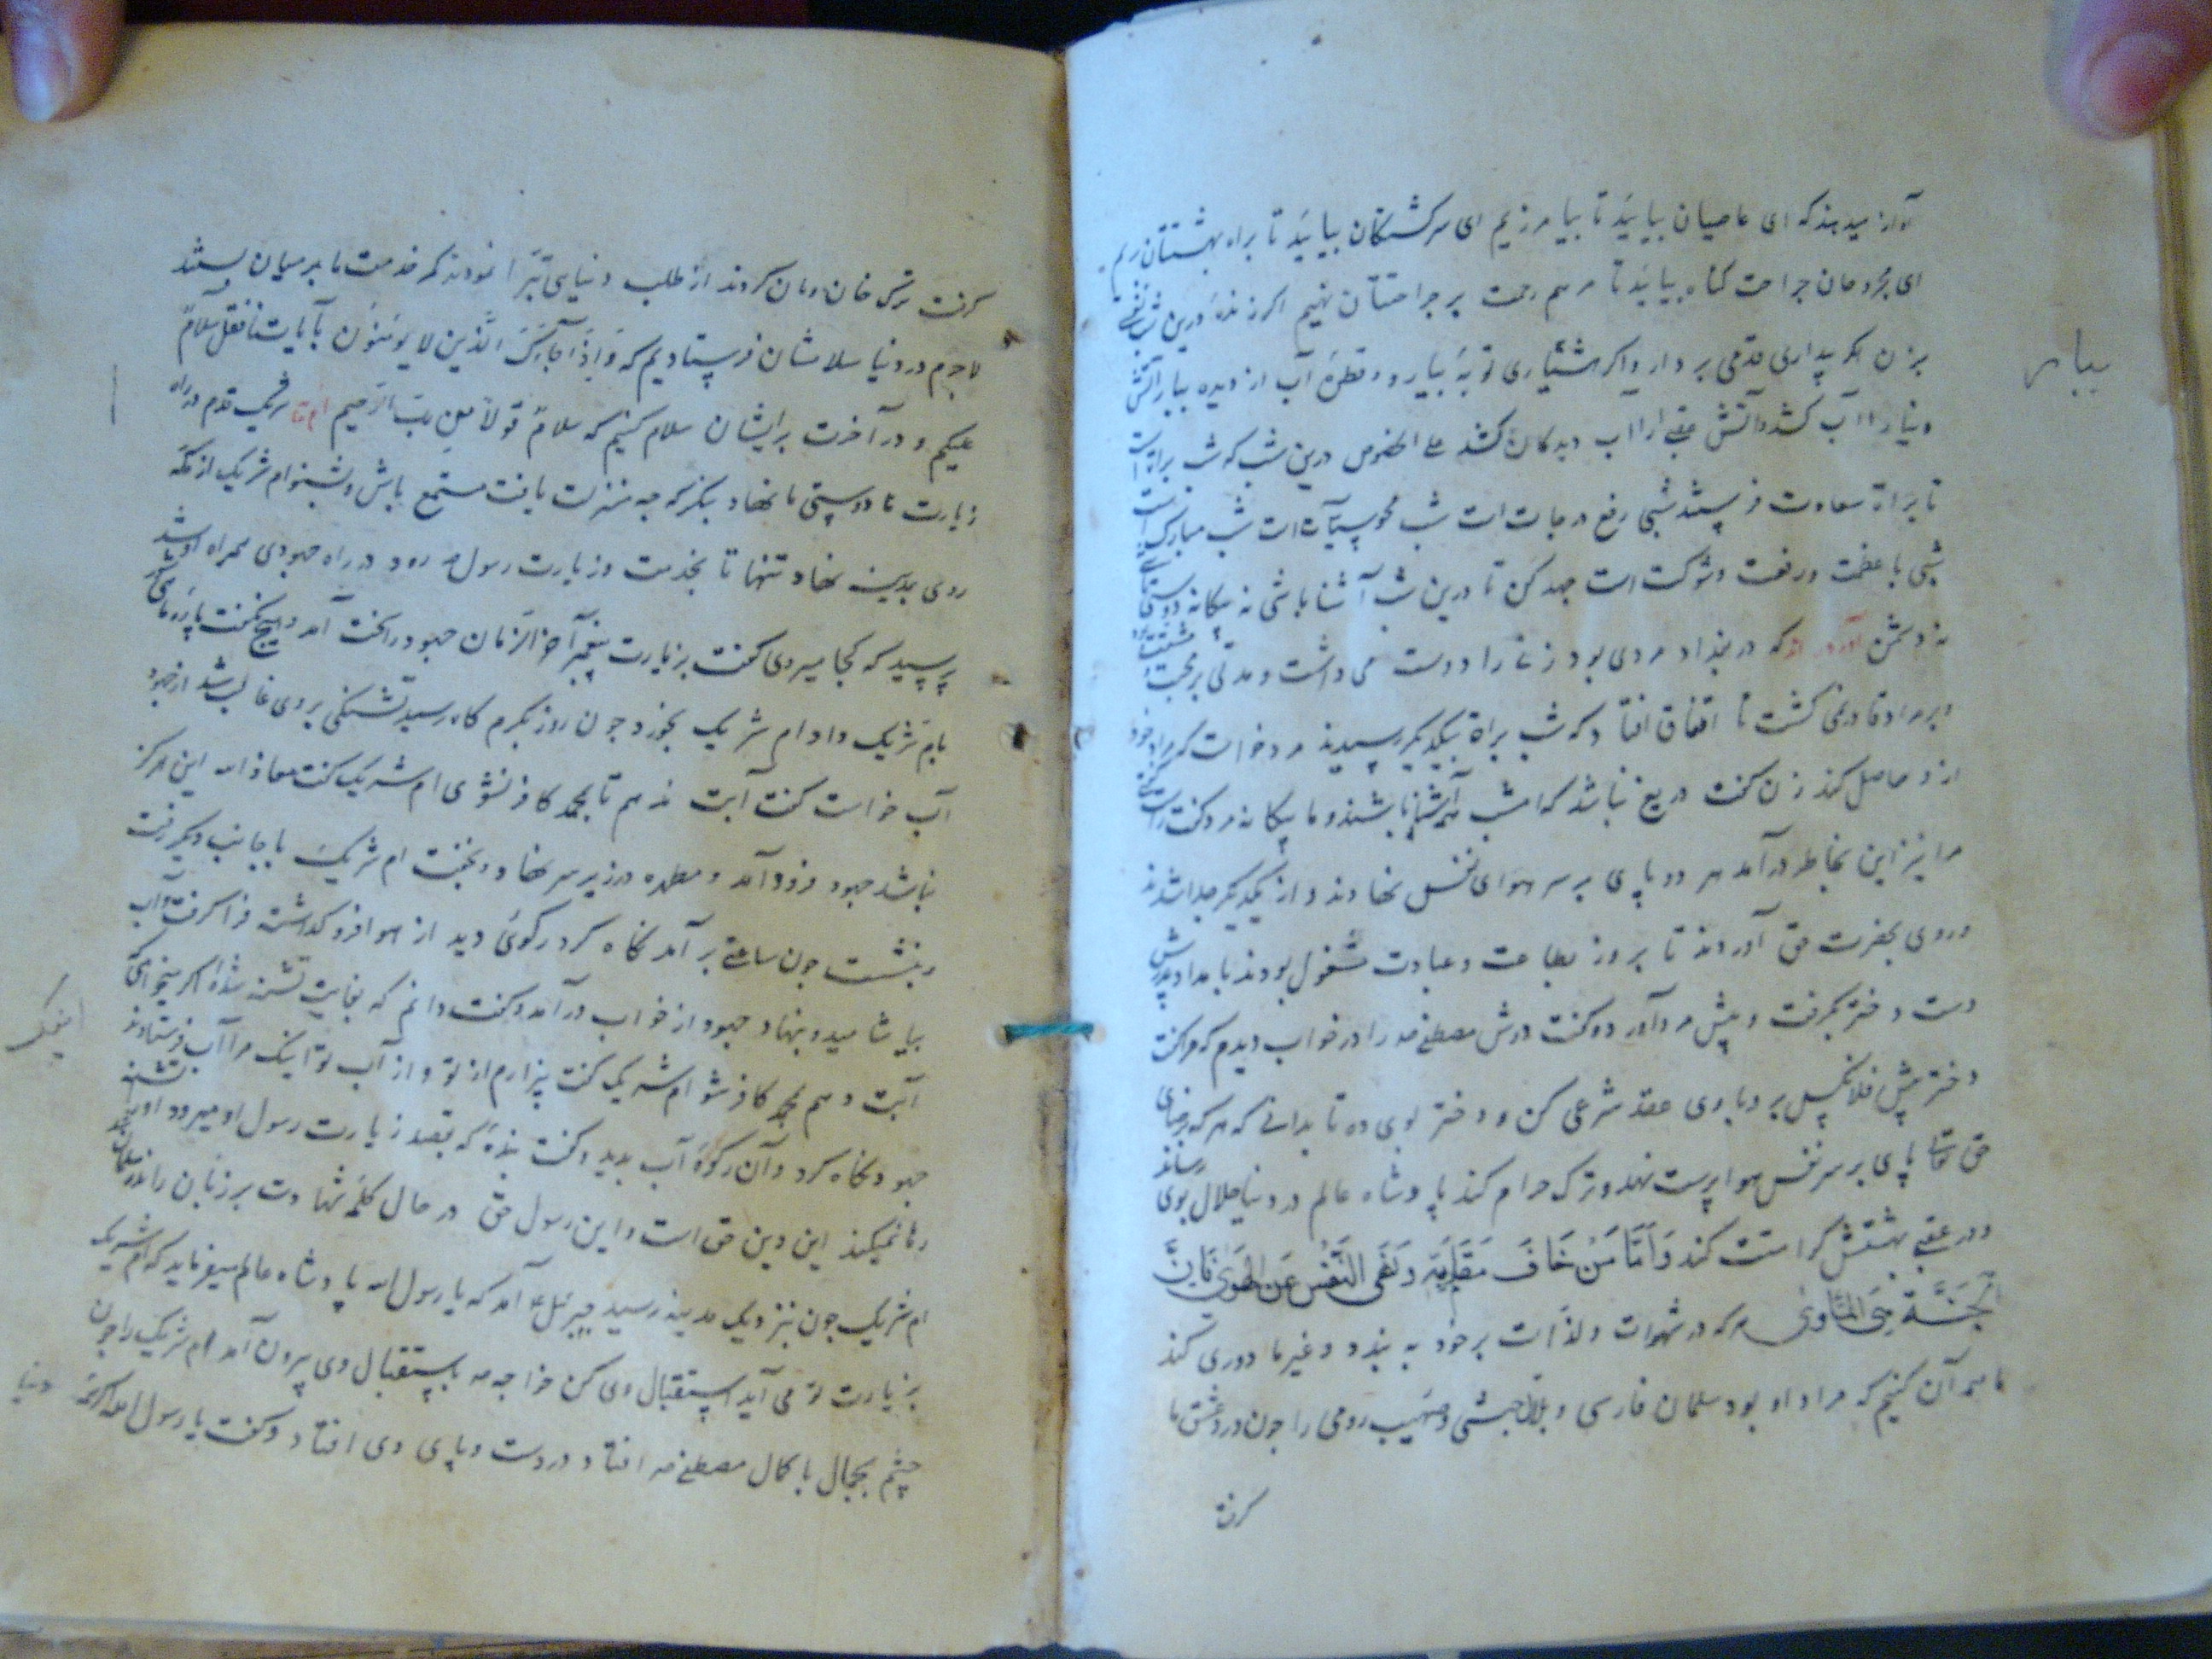 آواز میدهند که ای عاصیان بیائید تا بیامرزیم ای سرکشتکان بیائید تا براه بهشتتان بریم
ای مجروحان جراحت کناه بیائید تا مرهم رحمت بر جراحتتان نهیم اکر زندهٔ درین شب نفسی
بزن اکر بیداری قدمی بردار و اکر هشیاری توبهٔ بیار و قطرهٔ آب از دیده ببار آتش
دنیا را آب کشد و آتش عقبی را آب دیدکان کشد علی الخصوص درین شب که شب براتست
تا براة سعادت فرستند شبی رفع درجات است شب محو سیآت است شب مبارک است
شبی با عظمت و رفعت و شوکت است جهد کن تا درین شب آشنا باشی نه بیکانه دوست باشی
نه دشمن آورده اند که در بغداد مردی بود زنی را دوست می داشت و مدتی بر محبت
و بر مراد قادر نمی کشت تا اتفاق افتاد که شب براة بیکدیکر رسیدند مرد خواست که مراد خود
ازو حاصل کند زن کفت دریغ نباشد که امشب همه آشنا باشند و ما بیکانه مرد کفت راست کفتی
مرا نیز این بخاطر درآمد هر دو پای بر سر هوای نفس نهادند و از یکدیکر جدا شدند
و روی بحضرت حق آوردند تا بروز بطاعت و عبادت مشغول بودند بامداد پدرش
دست دختر بکرفت و پیش مرد آورد و کفت دوش مصطفی را در خواب دیدم که مرا کفت
دختر پیش فلانکس بر و با وی عقد شرعی کن و دختر بوی ده تا بدانی که هر که رضای
حق تعالی پای بر سر نفس هوا پرست نهد و ترک حرام کند پادشاه عالم در دنیا حلال بوی رساند
و در عقبی بهشتش کرامت کند وَاَمَّا مَنْ خَافَ مَقَامَ رَبِّه وَنَهَى النَّفْسَ عَنِ الهَوَىٰ فَاِنَّ
الجَنَّةَ هِیَ المَأوىٰ هر که در شهوات و لذات بر خود به بندد و غیر ما دوری کند
ما همه آن کنیم که مراد او بود سلمان فارسی و بلال حبشی و صهیب رومی را چون درد عشق ما
کرفت
بیامر
کرفت ترک خان و مان کردند از طلب دنیا تبرّا نمودند کمر خدمت ما بر میان بستند
لاجرم در دنیا سلامشان فرستادیم که وَاِذَا جَآءَکَ الَّذین لا یؤمنون بآیاتنا فقل سلامٌ
علیکم و در آخرت بر ایشان سلام کنیم که سلامٌ قولاً من ربّ الرّحیم ام شریک قدم در راه
زیارت ما و دوستی ما نهاد بنکر که چه منزلت یافت مستمع باش و بشنو ام شریک از مکه
روی بمدینه نهاد تنها تا بخدمت و زیارت رسول رود در راه جهودی همراه او شد
پرسید که کجا میروی کفت بزیارت پیغمبر آخر الزمان جهود را سخت آمد و هیچ نکفت پارهٔ ماهی شور
بام شریک داد ام شریک بخورد چون روز بکرم کاه رسید تشنکی بر وی غالب شد از جهود
آب خواست کفت آبت ندهم تا بمحمد کافر نشوی ام شریک کفت معاذ الله این هرکز
نباشد جهود فرود آمد و مطهره در زیر سر نهاد و بخفت ام شریک با جانب دیکر رفت
و بنشست چون ساعتی بر آمد نکاه کرد رکوئی دید از هوا فرو کذاشته فرا کرفت و آب
بیاشامید و بنهاد جهود از خواب درآمد و کفت دانم که بغایت تشنه شدهٔ اکر میخواهی که
آبت دهم بمحمد کافر شو ام شریک کفت بیزارم از تو و از آب تو اینک مرا آب فرستادند
جهود نکاه کرد و آن رکوهٔ آب بدید و کفت بندهٔ که بقصد زیارت رسول او میرود او را تشنه
رها نمیکند این دین حق است و این رسول حق در حال کلمهٔ شهادت بر زبان راند و مسلمان شد
ام شریک چون نزدیک مدینه رسید جبرئیل آمد که یا رسول الله پادشاه عالم میفرماید که ام شریک
بزیارت تو می آید استقبال وی کن خواجه باستقبال وی بیرون آمد ام شریک را چون
چشم بجمال با کمال مصطفی افتاد در دست و پای وی افتاد و کفت یا رسول الله اکر
اینک
دنیا